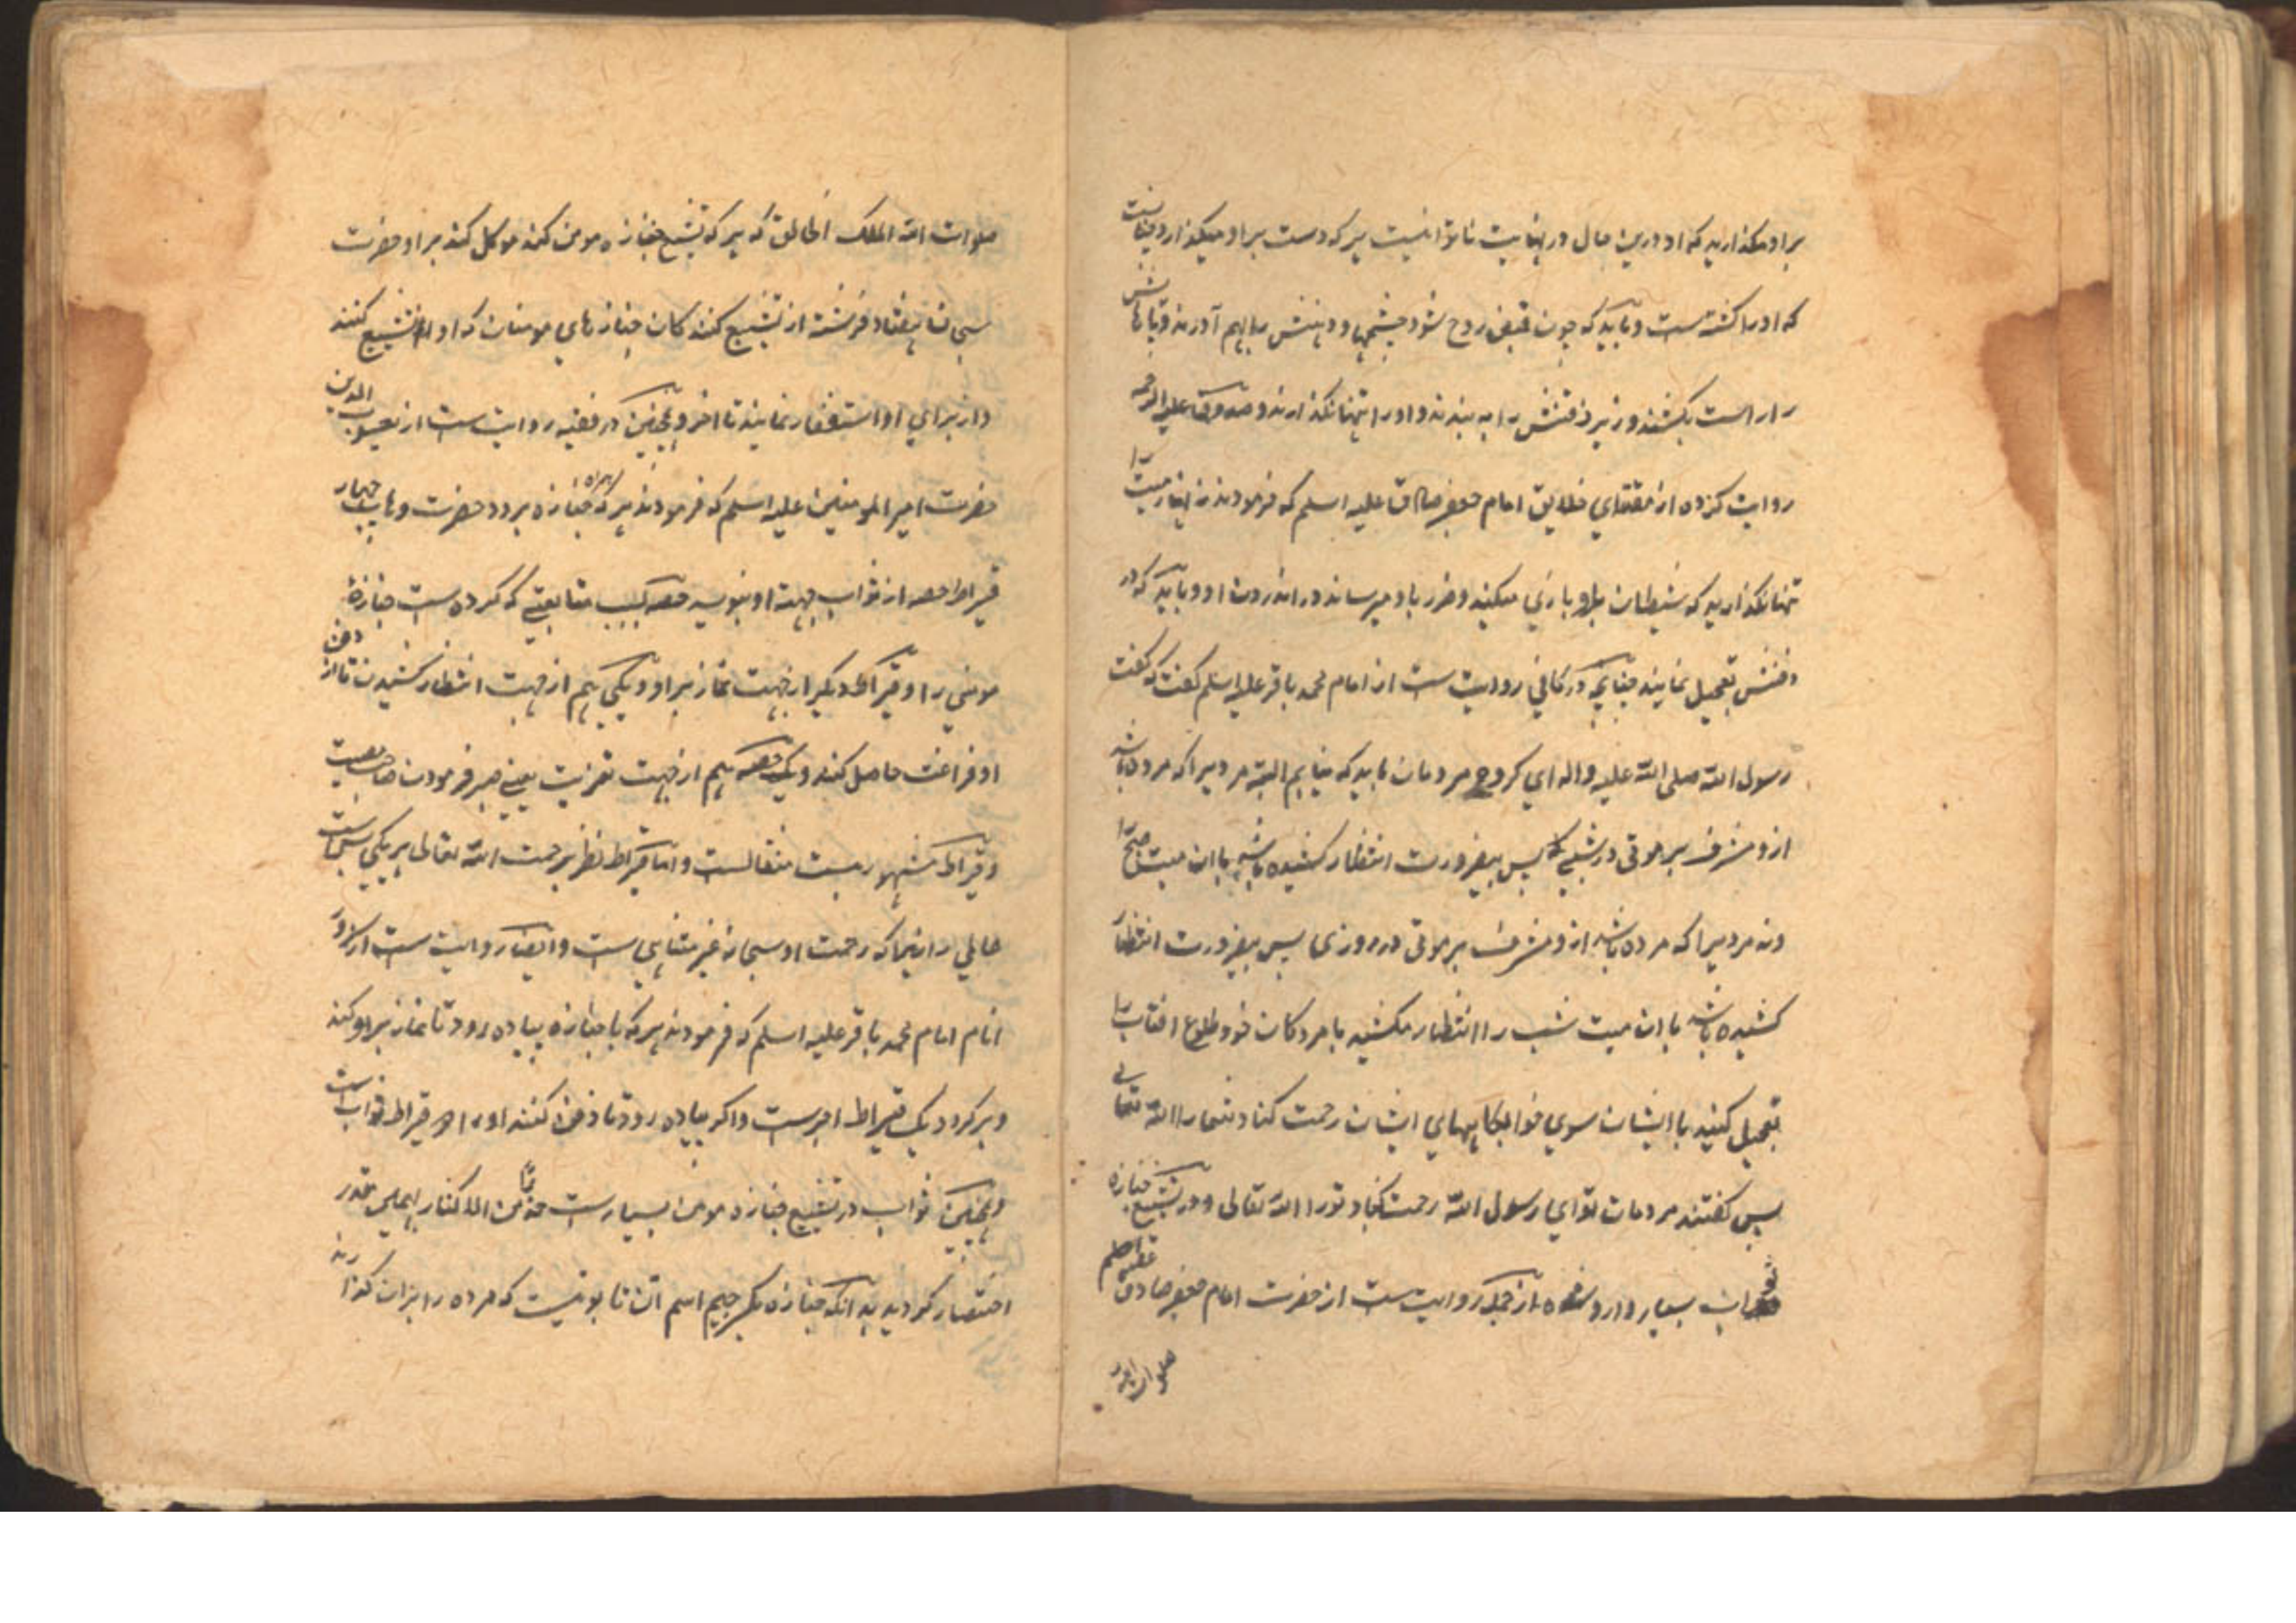 بر او مکذارید که او درین حال در نهایت ناتوانیست هر که دست بر او میکذارد چنانست
که او را کشته است و باید که چون قبض روح شود چشمها و دهنش را بهم آورند و پاهاش
را راست بکشند و زیر ذقنش را به بندند و او را تنها نکذارند و صدوق علیه الرحمه
روایت کرده از مقتدای خلایق امام جعفر صادق علیه السلم که فرمودند میت را
تنها نکذارید که شیطان باو بازی میکند و ضرر باو میرساند در اندرون او و باید که در
دفنش تعجیل نمایند چنانچه در کافی روایت است از امام محمد باقر علیه السلم کفت که کفت
رسول الله صلی الله علیه و اله ای کروه مردمان باید که نیابم البته مردیرا که مرده باشد
ازو مشرف بر موتی در شبی که پس بیضرورت انتظار کشیده باشد با ان میت صبح را
و نه مردیرا که مرده باشد ازو مشرف بر موتی در روزی پس بیضرورت انتظار
کشیده باشد با ان میت شب را انتظار مکشید با مردکان خود طلوع افتاب را
تعجیل کنید با ایشان سوی خوابکاههای ایشان رحمت کناد شما را الله تعالی
پس کفتند مردمان تو ای رسول الله رحمت کناد تو را الله تعالی و در تشییع جنازه
ثواب بسیار وارد شده از جمله روایت است از حضرت امام جعفر صادق علیه السلم
صلوات الله
صلوات الله الملک الخالق که هر که تشییع جنازه مومن کند موکل کند بر او حضرت
سبحانه هفتاد فرشته از تشییع کنندکان جنازهای مومنان که او را تشییع کنند
و از برای او استغفار نمایند تا اخر و همچنین در فقیه روایت است از یعسوب الدین
حضرت امیر المومنین علیه السلم که فرمودند هر که همراه جنازه برود حضرت وهاب چهار
قیراط حصه از ثواب جهت او بنویسد حصه بسبب متابعتی که کرده است جنازهٔ
مومنی را و قیراط دیکر از جهت نماز بر او و یکی هم از جهت انتظار کشیدن تا از دفن
او فراغت حاصل کند و یک حصه هم از جهت تعزیت یعنی صبر فرمودن صاحب مصیبت
و قیراط مشهور بیست مثقالست و اما قیراط نظر برحمت الله تعالی هر یکی بس است
عالمی را زیرا که رحمت او سبحانه غیر متناهی است و ایضا روایت است از سرور
انام امام محمد باقر علیه السلم که فرمودند هر که با جنازه پیاده رود تا نماز بر او کند
و برکردد یک قیراط اجرست و اکر پیاده رود تا دفن کنند او را دو قیراط ثواب است
و همچنین ثواب در تشییع جنازه مومن بسیارست
اختصار کردید بدانکه جنازه بکسر جیم اسم ان تابوتیست که مرده را بران کذارند